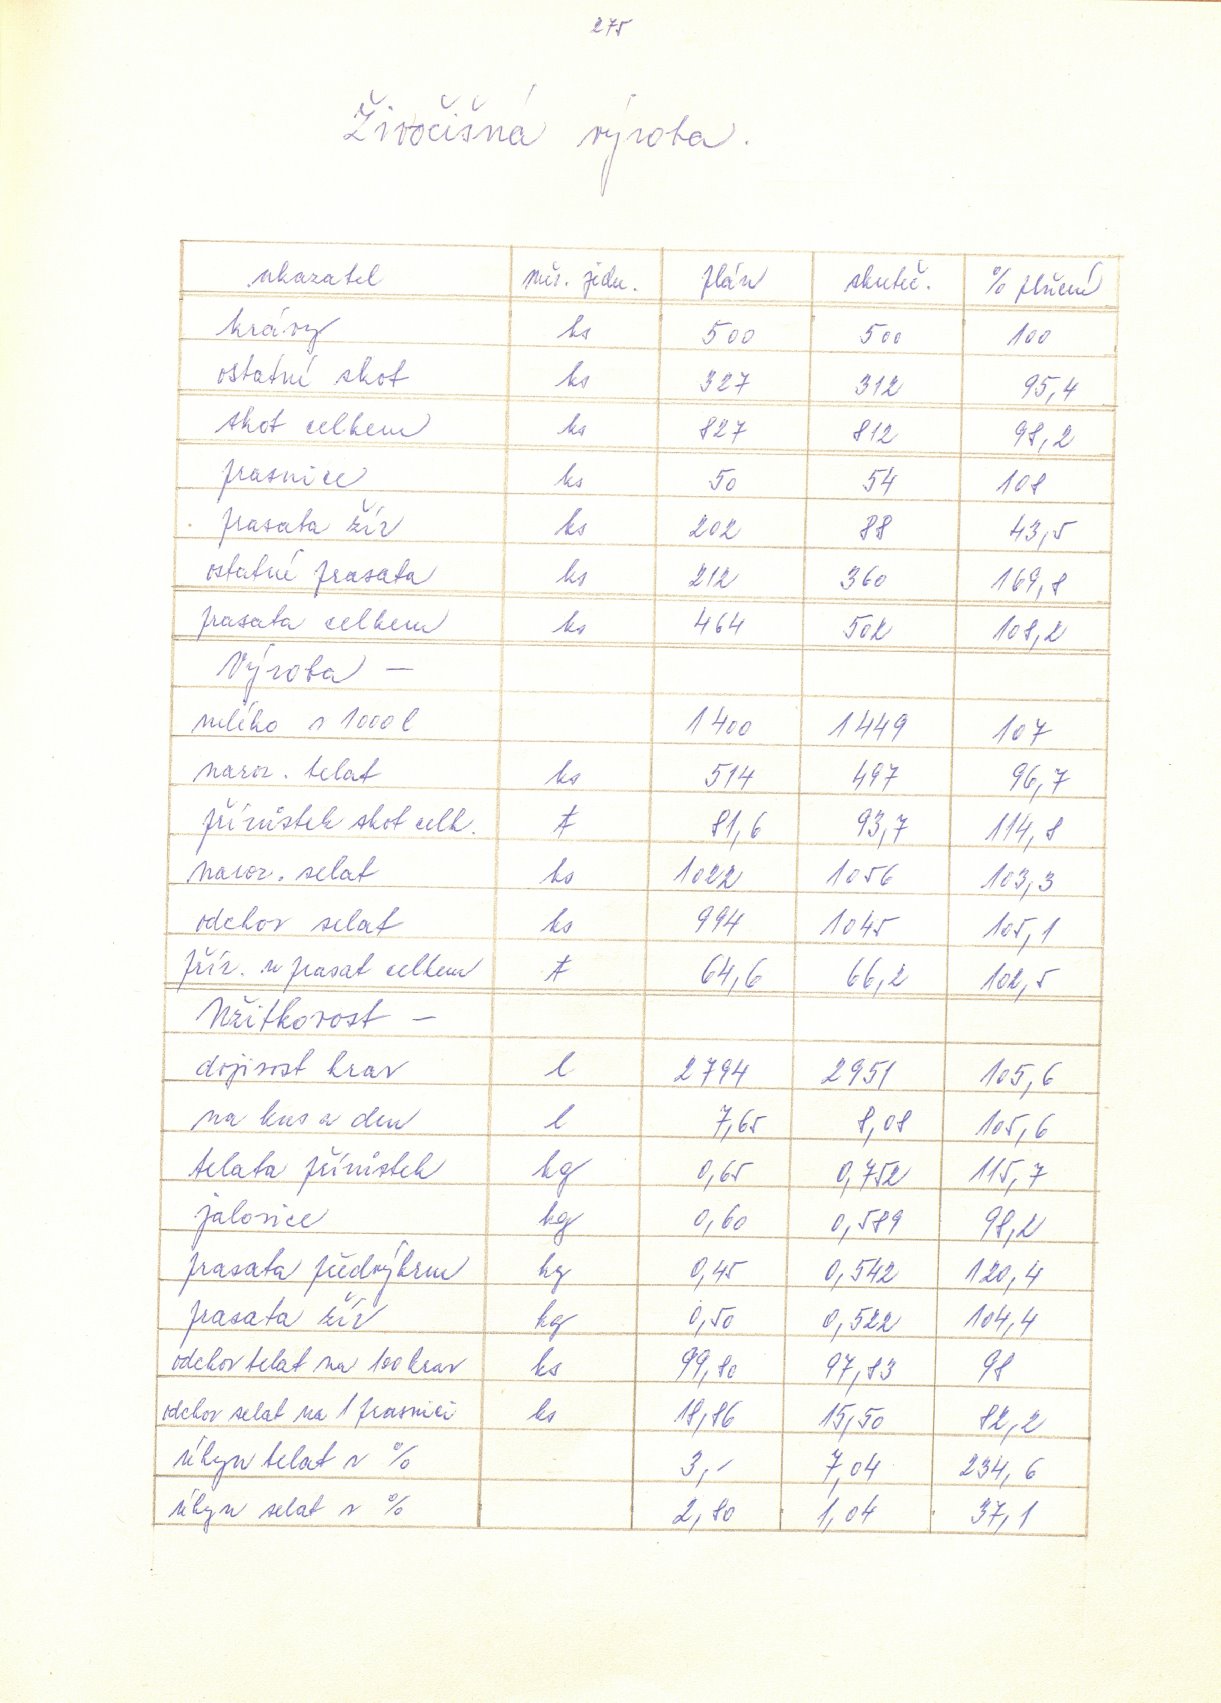 275
Živočišná výroba.
ukazatel měr. jedn. plán skuteč. % plnění
krávy ks 500 500 100
ostatní skot ks 327 312 95,4
skot celkem ks 827 812 98,2
prasnice ks 50 54 108
prasata žír ks 202 88 43,5
ostatní prasata ks 212 360 169,8
prasata celkem ks 464 502 108,2
Výroba –
mléko v 1000 l 1400 1449 107
naroz. telat ks 514 497 96,7
přírůstek skot celk. t 81,6 93,7 114,8
naroz. selat ks 1022 1056 103,3
odchov selat ks 994 1045 105,1
přír. u prasat celkem t 64,6 66,2 102,5
Užitkovost –
dojivost krav l 2794 2951 105,6
na kus a den l 7,65 8,08 105,6
telata přírůstek kg 0,65 0,752 115,7
jalovice kg 0,60 0,589 98,2
prasata předvýkrm kg 0,45 0,542 120,4
prasata žír kg 0,50 0,522 104,4
odchov telat na 100 krav ks 99,80 97,83 98
odchov selat na 1 prasnici ks 18,86 15,50 82,2
úhyn telat v % 3,- 7,04 234,6
úhyn selat v % 2,80 1,04 37,1